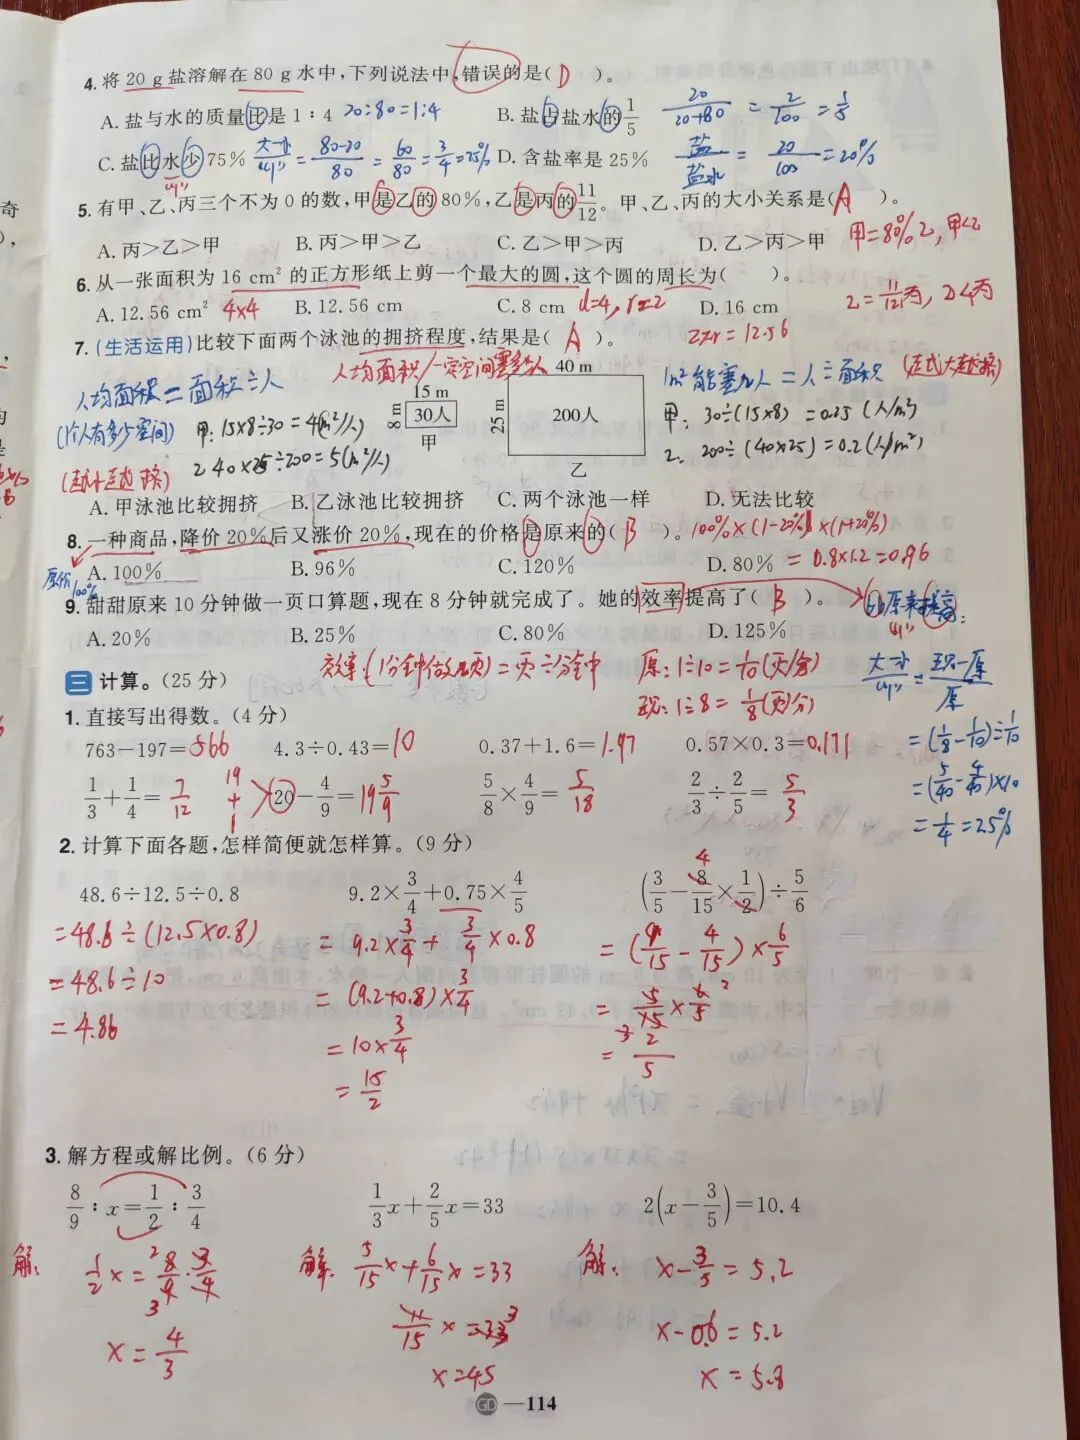 4. 将 20 g 盐溶解在 80 g 水中,下列说法中,错误的是( D )。
A. 盐与水的质量比是 1∶4 20÷80=1:4 B. 盐占盐水的 1/5 20/(20+80) = 2/100 = 1/5
C. 盐比水少 75% (大-小)/“1” = (80-20)/80 = 60/80 = 3/4 = 75% D. 含盐率是 25% 盐/盐水 = 20/100 = 20%
“1”
5. 有甲、乙、丙三个不为 0 的数,甲是乙的 80%,乙是丙的 11/12。甲、乙、丙的大小关系是( A )。
A. 丙>乙>甲 B. 丙>甲>乙 C. 乙>甲>丙 D. 乙>丙>甲 甲=80%乙, 甲<乙
6. 从一张面积为 16 cm² 的正方形纸上剪一个最大的圆,这个圆的周长为( )。
A. 12.56 cm² 4×4 B. 12.56 cm C. 8 cm d=4, r=2 D. 16 cm 乙=11/12丙, 乙<丙
2πr=12.56
7. (生活运用)比较下面两个泳池的拥挤程度,结果是( A )。
人均面积/一定空间塞多少人
人均面积=面积÷人
(1个人有多少空间)
甲: 15×8÷30=4(m²/人)
乙 40×25÷200=5(m²/人)
(越小越挤)
15 m
8 m
30人
甲
40 m
25 m
200人
乙
1m²能塞几人=人÷面积 (越大越挤)
甲: 30÷(15×8)=0.25(人/m²)
乙: 200÷(40×25)=0.2(人/m²)
A. 甲泳池比较拥挤 B. 乙泳池比较拥挤 C. 两个泳池一样 D. 无法比较
8. 一种商品,降价 20%后又涨价 20%,现在的价格是原来的( B )。 100%×(1-20%)×(1+20%)
原价100%
A. 100% B. 96% C. 120% D. 80% =0.8×1.2=0.96
9. 甜甜原来 10 分钟做一页口算题,现在 8 分钟就完成了。她的效率提高了( B )。 比原来提高:
“1”
A. 20% B. 25% C. 80% D. 125%
效率:(1分钟做几页)=页÷分钟 原:1÷10=1/10(页/分)
现:1÷8=1/8(页/分)
(大-小)/“1” = (现-原)/原
=(1/8-1/10)÷1/10
=(5/40-4/40)×10
=1/4=25%
三 计算。(25 分)
1. 直接写出得数。(4 分)
763-197=566 4.3÷0.43=10 0.37+1.6=1.97 0.57×0.3=0.171
1/3+1/4=7/12 19+1 20-4/9=19 5/9 5/8×4/9=5/18 2/3÷2/5=5/3
2. 计算下面各题,怎样简便就怎样算。(9 分)
48.6÷12.5÷0.8 9.2×3/4+0.75×4/5 (3/5-8/15×1/2)÷5/6
4
=48.6÷(12.5×0.8) =9.2×3/4+3/4×0.8 =(9/15-4/15)×6/5
=48.6÷10 =(9.2+0.8)×3/4 =5/15×6/5 2
=4.86 =10×3/4 3
=15/2 =2/5
3. 解方程或解比例。(6 分)
8/9∶x=1/2∶3/4 1/3x+2/5x=33 2(x-3/5)=10.4
解: 1/2x=8/9·3/4 解: 5/15x+6/15x=33 解: x-3/5=5.2
2 3
x=4/3 11/15x=33 3 x-0.6=5.2
x=45 x=5.8
GD —114